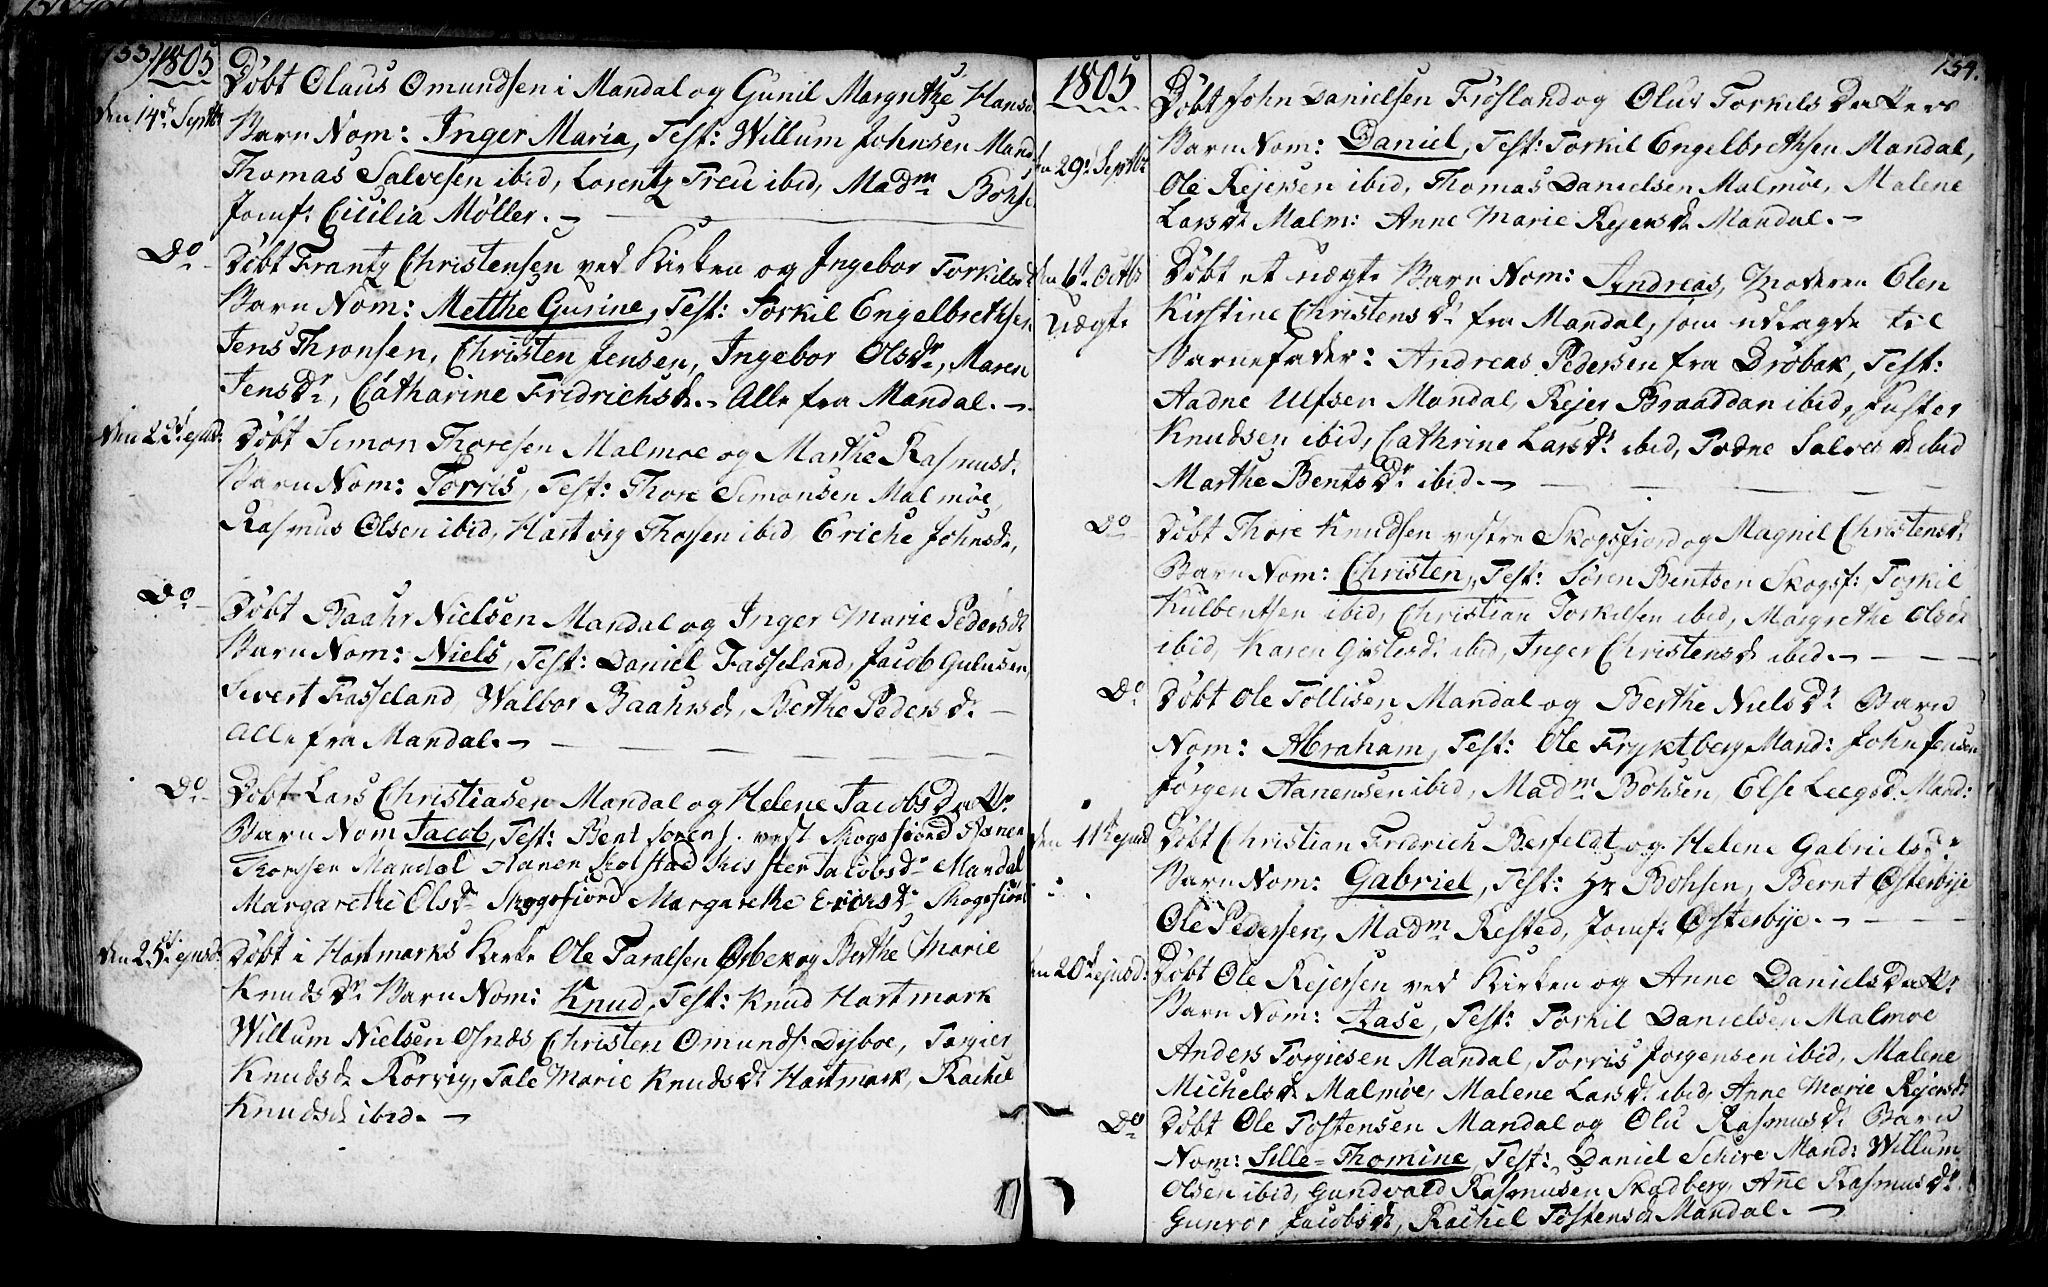 153) 1805
den 14de Septbr
Døbt Olaus Omundsen i Mandal og Gunil Margrethe Hansd
Barn Nom: Inger Maria, Test: Willum Johnsen Mand
Thomas Salvesen ibid, Lorentz Treu ibid, Madm Bohse
Jomf: Cicilia Møller. -
Do
Døbt Frantz Christensen ved Kirken og Ingebor Torkilsd
Barn Nom: Metthe Gurine, Test: Torkil Engelbrethsen
Jens Thronsen, Christen Jensen, Ingebor Olsdr, Maren
Jensdr, Catharine Fridrichsd. - Alle fra Mandal. -
den ejusd:
Døbt Simon Thoresen Malmoe og Marthe Rasmusd.
Barn Nom: Torris, Test: Thore Simonsen Malmøe,
Rasmus Olsen ibid, Hartvig Thorsen ibid Eriche Johnsd,
Do
Døbt Baahr Nielsen Mandal og Inger Marie Pedersdr
Barn Nom: Niels, Test: Daniel Fasseland, Jacob Gulusen,
Sivert Fasseland, Walbor Baahrsd, Berthe Pedersdr
Alle fra Mandal. -
Do
Døbt Lars Christiasen Mandal og Helene Jacobs Dattr
Barn Nom Jacob, Test: Bent Sørens. vest Skogsfiord Aanen
Thorsen Mandal Aanen Holstad Sister Jacobsdr Mandal
Margarethe Olsdr Skogsfiord Margarethe Ericsdr Skogsfiord
den 25de ejusd:
Døbt i Hartmarks Kirke Ole Taralsen Orbek og Berthe Marie
Knudsdr Barn Nom: Knud, Test: Knud Hartmark
Willum Nielsen Osnes Christen Omunds. Dyboe, Torgier
Knudsd Rørvig, Tale Marie Knudsdr Hartmark, Rachel
Knudsd ibid. -
1805
154.
den 29de Septbr
Døbt John Danielsen Frøsland og Olus Torkils Datters
Barn Nom: Daniel, Test: Torkil Engelbrethsen Mandal,
Ole Rejersen ibid, Thomas Danielsen Malmøe, Malene
Larsdr Malm: Anne Marie Rejersdr Mandal. -
den 6te Octbr
uægte
Døbt et uægte Barn Nom: Andreas, Moderen Elen
Kirstine Christensdr fra Mandal, som udlagde til
Barnefader: Andreas Pedersen fra Drøbak, Test:
Aadne Ulfsen Mandal, Rejer Braaddan ibid,
Knudsen ibid, Cathrine Larsdr ibid, Todne Salvesd ibid
Marthe Bentsdr ibid. -
Do
Døbt Thore Knudsen vestre Skogsfiord og Magnil Christensd.
Barn Nom: Christen, Test: Søren Bentsen Skogsf: Torkil
Kulbentsen ibid, Christian Torkelsen ibid, Margrethe Olsdr
ibid, Karen Gislesd ibid, Inger Christensd ibid. -
Do
Døbt Ole Tollisen Mandal og Berthe Nielsdr Barn
Nom: Abraham, Test: Ole Frycktberg Mand: John Jensen
Jørgen Aanensen ibid, Madm Bohsen, Else Leegod Mand:
den 11te ejusd
Døbt Christian Fridrich Berfeldt og Helene Gabrielsdr
Barn Nom: Gabriel, Test: Hr Bohsen, Bernt Østerbye
Ole Pedersen, Madm Rested, Jomf: Østerbye. -
den 20de ejusd:
Døbt Ole Rejersen ved Kirken og Anne Daniels Dattr
Barn Nom: Aase, Test: Torkil Danielsen Malmoe
Anders Torgiesen Mandal, Torris Jørgensen ibid, Malene
Michelsdr Malmøe, Malene Larsdr ibid, Anne Marie Rejersdr
Do
Døbt Ole Tostensen Mandal og Olu Rasmusdr Barn
Nom: Sille-Thomine, Test: Daniel Schire Mand: Willum
Olsen ibid, Gundvald Rasmusen Skadberg, Añe Rasmusdr
Gunvor Jacobsdr, Rachel Tostensd Mandal. -